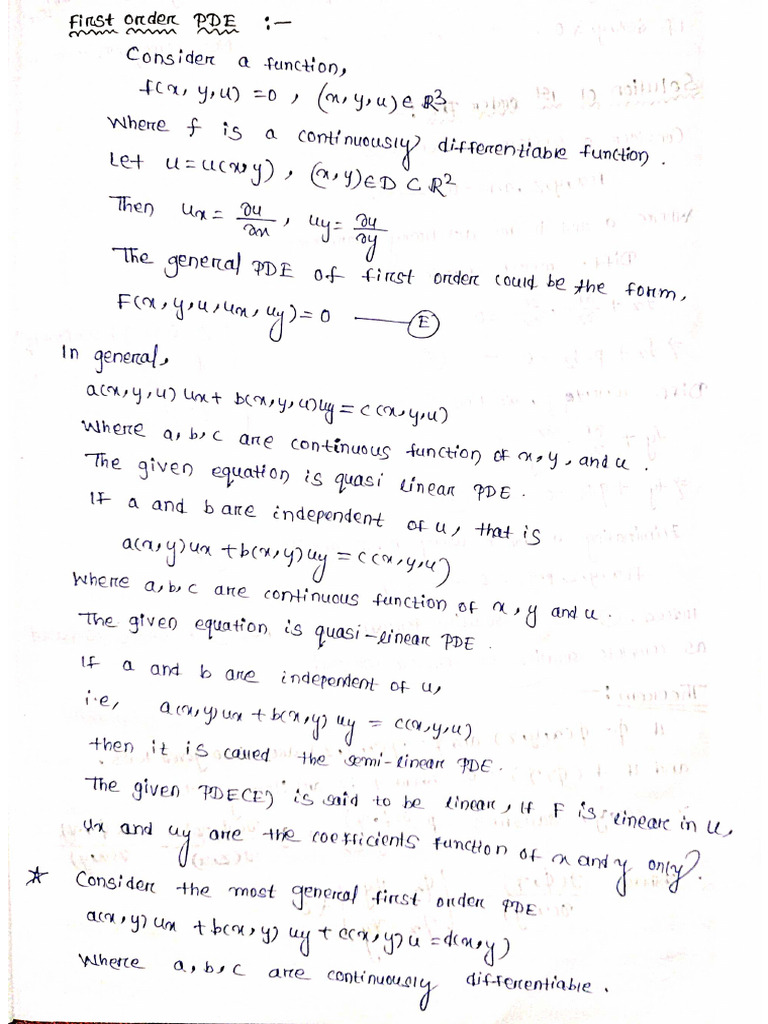 First order PDE :-
Consider a function,
f(x, y, u) = 0 , (x, y, u) ∈ R³
where f is a continuously differentiable function.
Let u = u(x, y) , (x, y) ∈ D ⊂ R²
Then ux = ∂u/∂x , uy = ∂u/∂y
The general PDE of first order could be the form,
F(x, y, u, ux, uy) = 0 —— (E)
In general,
a(x, y, u) ux + b(x, y, u) uy = c(x, y, u)
where a, b, c are continuous function of x, y, and u.
The given equation is quasi linear PDE.
If a and b are independent of u, that is
a(x, y) ux + b(x, y) uy = c(x, y, u)
where a, b, c are continuous function of x, y and u.
The given equation is quasi-linear PDE.
If a and b are independent of u,
i.e, a(x, y) ux + b(x, y) uy = c(x, y, u)
then it is called the semi-linear PDE.
The given PDE(E) is said to be linear, if F is linear in u,
ux and uy are the coefficients function of x and y only.
☆ Consider the most general first order PDE
a(x, y) ux + b(x, y) uy + c(x, y) u = d(x, y)
where a, b, c are continuously differentiable.